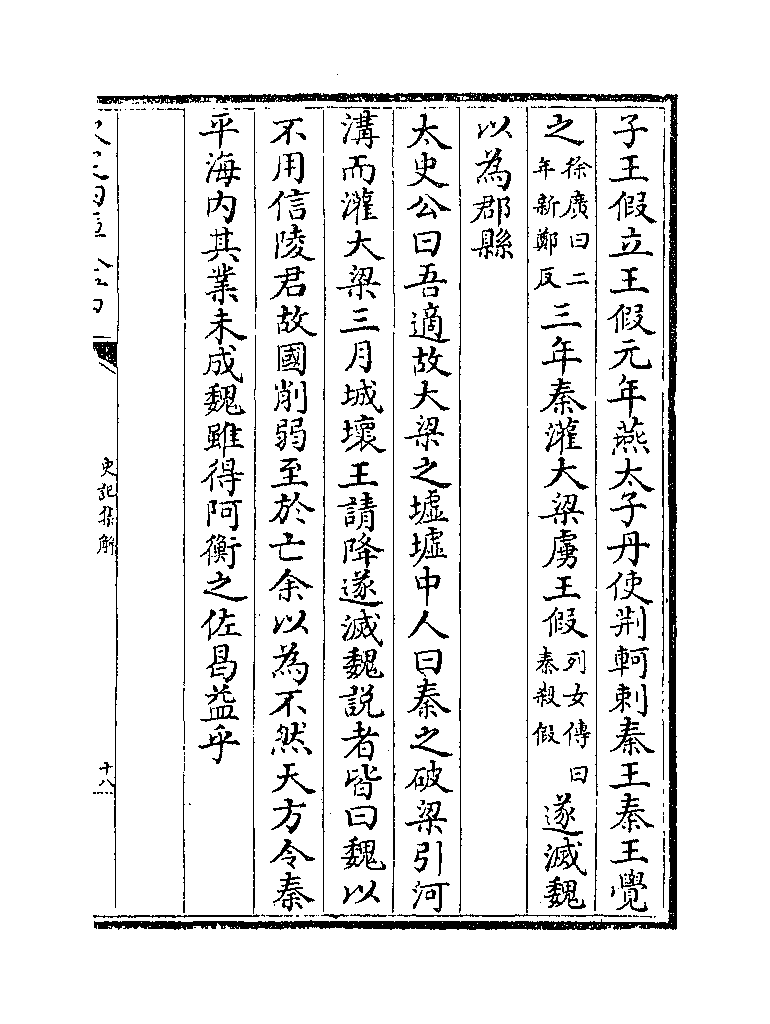 子王假立王假元年燕太子丹使荆軻刺秦王秦王覺
之徐廣曰二年新鄭反三年秦灌大梁虜王假列女傳曰秦殺假遂滅魏
以為郡縣
太史公曰吾適故大梁之墟墟中人曰秦之破梁引河
溝而灌大梁三月城壞王請降遂滅魏說者皆曰魏以
不用信陵君故國削弱至於亡余以為不然天方令秦
平海内其業未成魏雖得阿衡之佐曷益乎
史記集解
十八